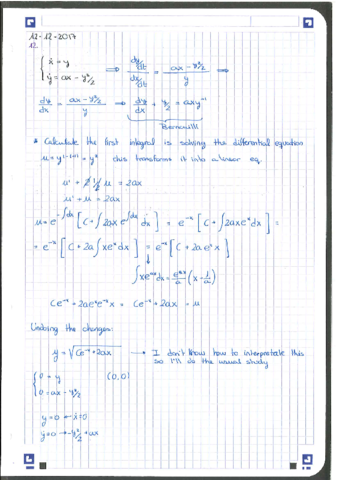 12-12-2017
12.
{ ẋ = y
{ ẏ = ax - y²/2 ⟹ dy/dt / dx/dt = (ax - y²/2) / y ⟹
dy/dx = (ax - y²/2) / y ⟹ dy/dx + y/2 = axy⁻¹
Bernouilli
* Calculate the first integral is solving the differential equation
u = y^(1-(-1)) = y² this transforms it into a linear eq.
u' + 2 1/2 u = 2ax
u' + u = 2ax
u = e^(-∫dx) [C + ∫2ax e^(∫dx) dx] = e⁻ˣ [C + ∫2axeˣdx] =
= e⁻ˣ [C + 2a ∫xeˣdx] = e⁻ˣ [C + 2aeˣx]
↓
∫xe^(ax)dx = e^(ax)/a (x - 1/a)
Ce⁻ˣ + 2aeˣe⁻ˣx = Ce⁻ˣ + 2ax = u
Undoing the changes:
y = √(Ce⁻ˣ + 2ax) → I don't know how to interpretate this
so I'll do the usual study
{ 0 = y (0,0)
{ 0 = ax - y²/2
y=0 → ẋ=0
ẏ=0 → -y²/2 + ax